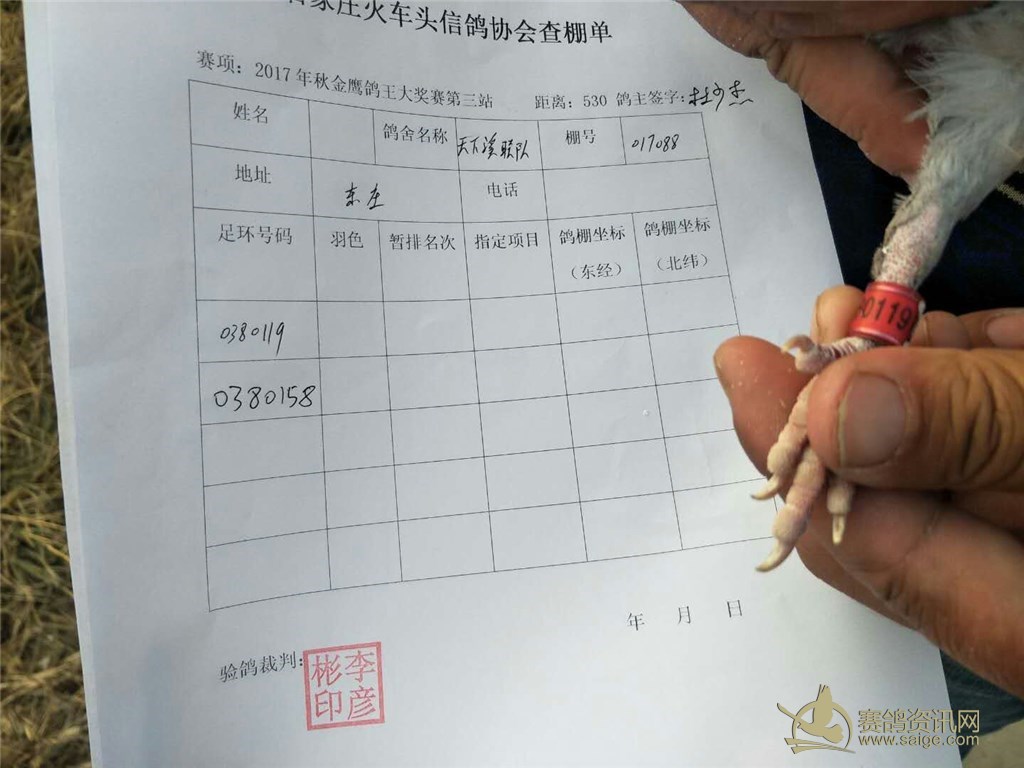 家庄火车头信鸽协会查棚单
赛项：2017年秋金鹰鸽王大奖赛第三站 距离：530 鸽主签字：杜少杰
姓名 鸽舍名称 天下溪联队 棚号 017088
地址 东庄 电话
足环号码 羽色 暂排名次 指定项目 鸽棚坐标（东经） 鸽棚坐标（北纬）
0380119
0380158
年 月 日
验鸽裁判：
李彦彬印
0119
赛鸽资讯网
www.saigc.com